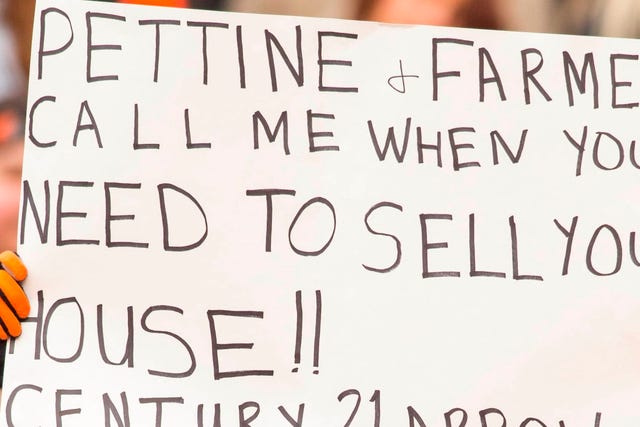 PETTINE & FARME
CALL ME WHEN YOU
NEED TO SELL YOU
HOUSE!!
CENTURY 21